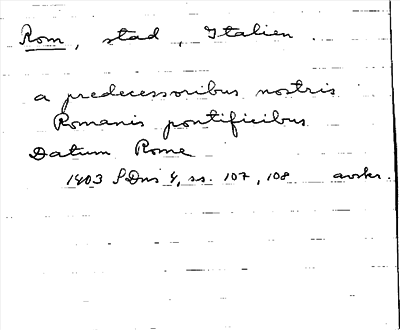 Rom, stad, Italien.
a predecessoribus nostris
Romanis pontificibus
Datum Rome
1403 SDns 4, ss. 107, 108 avskr.